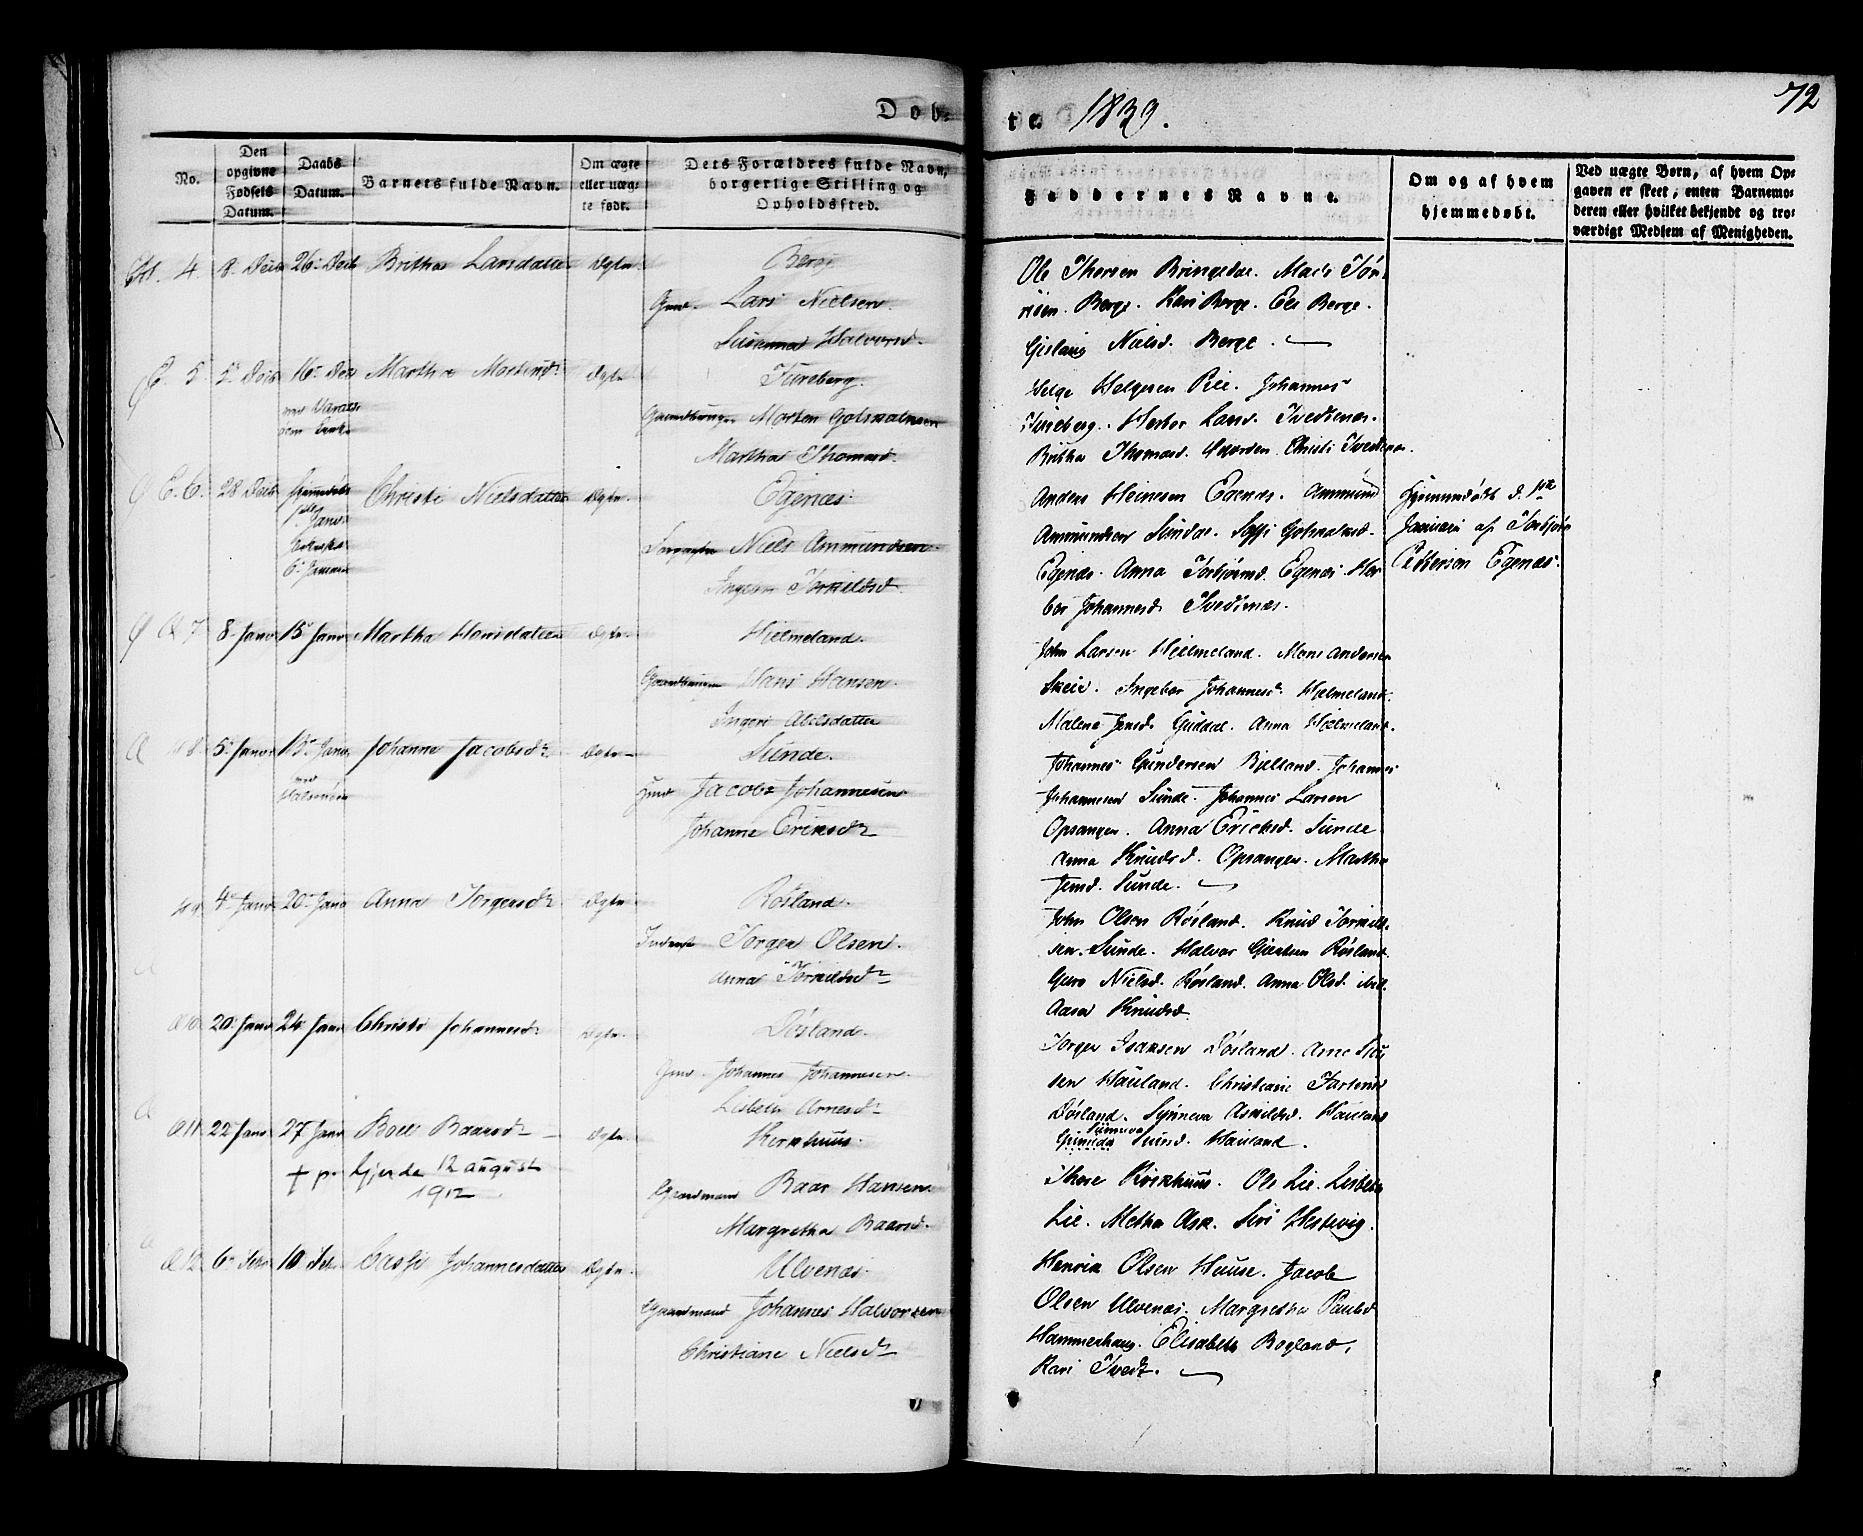 Døb-
te 1839.
72
No.
Den opgivne Fødsels Datum.
Daabs Datum.
Barnets fulde Navn.
Om ægte eller uægte født.
Dets Forældres fulde Navn, borgerlige Stilling og Opholdssted.
Faddernes Navne.
Om og af hvem hjemmedøbt.
Ved uægte Børn, af hvem Opgaven er skeet, enten Barnemoderen eller hvilket bekjendt og troværdigt Medlem af Menigheden.
4. 8. Decb 26. Decb Britha Larsdatter Ægte. Berge
Gmd. Lars Nielsen
Susanna Halvorsd.
Ole Thorsen Bringedal. Mads Tør-
risen Berge. Kari Berge. Eli Berge.
Gislaug Nielsd. Berge.
5. 5. Decb 16. Decb Martha Mortensd. Ægte. Tureberg.
Gaardbruger Morten Gotskalksen
Martha Thomasd.
Helge Helgesen Pile. Johannes
Tureberg. Tvedtenæs.
Britha Thomasd. Christi Tvedtenæs.
6. 28 Decb Christi Nielsdatter Ægte. Egenæs
6. Januar
Niels Ammundsen
Torkildsd.
Anders Heinesen Egenæs. Ammund
Ammundsen Sundal. Gotskalksd.
Egenæs. Anna Torbjørnsd. Egenæs. Her-
bor Johannesd. Tvedtnæs.
Hjemmedøbt d. 1ste
Januari af Torbjørn
Pettersen Egenæs.
7 8. Janv 15. Janv Martha Hansdatter Ægte. Hjelmeland.
Gaardbruger Hans Hansen.
Ingeri Abelsdatter
John Larsen Hjelmeland. Mons Andersen
Skeie. Ingebor Johannesd. Hjelmeland.
Malena Jensd. Guddal. Anna Hjelmeland.
8 5. Janv 15. Janv Johanne Jacobsdr Ægte. Sunde.
Jacob Johannesen
Johanne Eriksdr
Johannes Gundersen Bjelland. Johannes
Johannesen Sunde. Johannes Larsen
Opsanger. Anna Ericksd. Sunde
Anna Knudsd. Opsanger. Martha
Jensd. Sunde.
9 4. Janv 20. Janv Anna Jørgensdr Ægte. Røsland.
Inderst Jørgen Olsen.
Anna Torkildsdr
John Olsen Røsland. Knud Torkild-
sen Sunde. Halvor Røsland.
Guro Nielsd. Røsland. Anna Olsd.
Knudsd.
10. 20. Janv 24. Janv Christi Johannesdr Ægte. Døsland.
Gmd. Johannes Johannesen.
Lisbeth Arnesdr
Jørgen Isaksen Døsland. Arne
sen Hauland. Christiane
Døsland. Synneva Askildsd. Hauland
Synneva
Hauland.
11. 22 Janv 27 Janv Boel Baarsdr Ægte. Kerkhuus.
† p. Gjerde 12 august
1912
Gaardmand Baar Hansen
Margretha Baarsd.
Thore Kirkhuus. Ole Lie. Lisbeth
Lie. Metha Ask. Siri Hestevig.
12. 6. Febr 10 Febr Johannesdatter Ægte. Ulvenæs.
Gaardmand Johannes Halvorsen
Christiane Nielsdr
Henrik Olsen Huuse. Jacob
Olsen Ulvenæs. Margretha Paulsd.
Hammerhaug. Elisabeth Bogland.
Kari Tvedt.